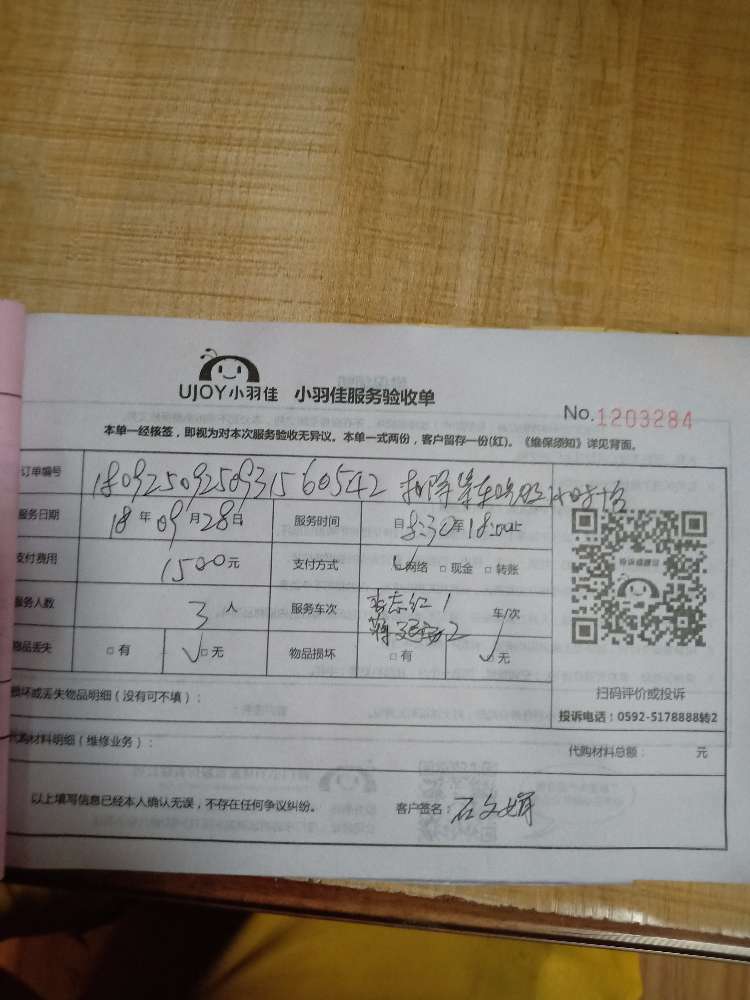 UJOY小羽佳 小羽佳服务验收单
No.1203284
本单一经核签，即视为对本次服务验收无异议。本单一式两份，客户留存一份(红)。《维保须知》详见背面。
订单编号 180925092509315 60542 扣除等车
服务日期 18年09月28日 服务时间 自8:30至18:00
支付费用 1500元 支付方式 网络 现金 转账
服务人数 3人 服务车次 李志红1 车/次
2
物品丢失 有 无 物品损坏 有 无
扫码评价或投诉
损坏或丢失物品明细（没有可不填）：
投诉电话：0592-5178888转2
代购材料明细（维修业务）： 代购材料总额： 元
以上填写信息已经本人确认无误，不存在任何争议纠纷。 客户签名：石文娟